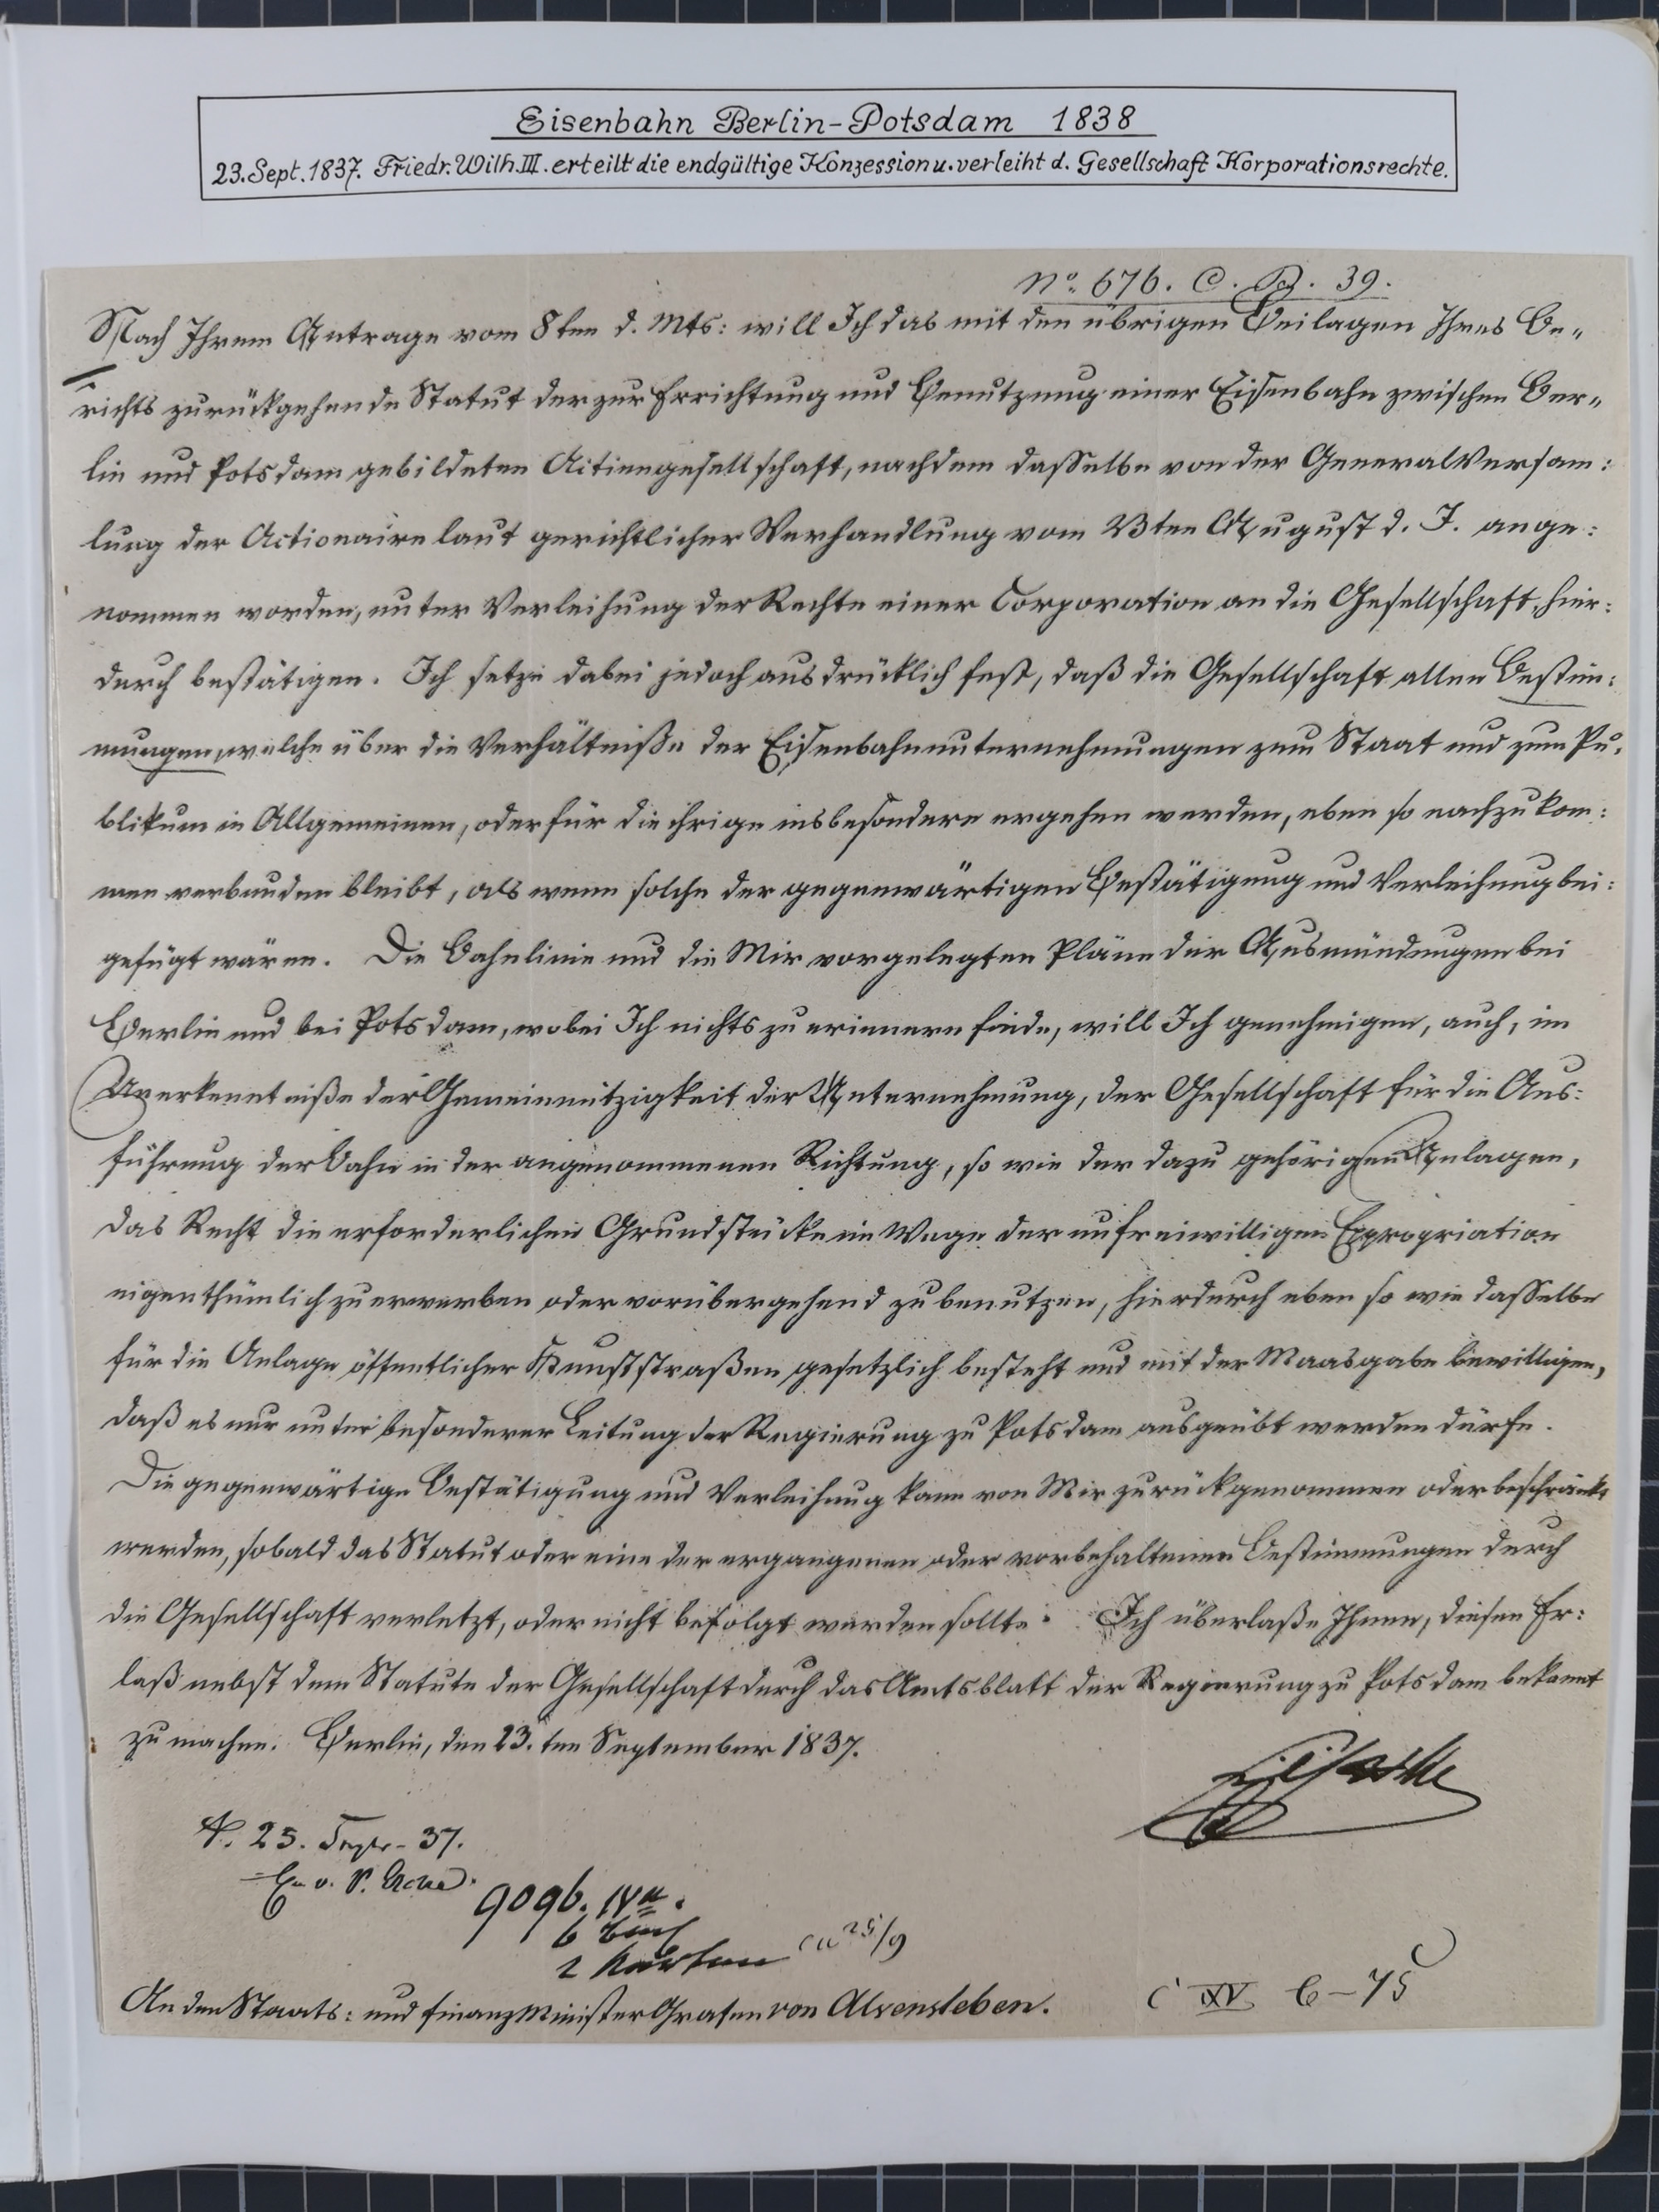 Eisenbahn Berlin-Potsdam 1838
23. Sept. 1837. Friedr. Wilh. III. erteilt die endgültige Konzession u. verleiht d. Gesellschaft Korporationsrechte.
No. 676. C. B. 39.
Nach Ihrem Antrage vom 8ten d. Mts: will Ich das mit den übrigen Beilagen Ihres Be„
richts zurückgehende Statut der zur Errichtung und Benutzung einer Eisenbahn zwischen Ber„
lin und Potsdam gebildeten Actiengesellschaft, nachdem dasselbe von der Generalversam:
lung der Actionaire laut gerichtlicher Verhandlung vom 23ten August d. J. ange:
nommen worden, unter Verleihung der Rechte einer Corporation an die Gesellschaft, hier:
durch bestätigen. Ich setze dabei jedoch ausdrücklich fest, daß die Gesellschaft allen Bestim:
mungen, welche über die Verhältniße der Eisenbahnunternehmungen zum Staat und zum Pu„
blikum im Allgemeinen, oder für die ihrige insbesondere ergehen werden, eben so nachzukom:
men verbunden bleibt, als wenn solche der gegenwärtigen Bestätigung und Verleihung bei:
gefügt wären. Die Bahnlinie und die Mir vorgelegten Pläne der Ausmündungen bei
Berlin und bei Potsdam, wobei Ich nichts zu erinnern finde, will Ich genehmigen, auch, im
Anerkenntniße der Gemeinnützigkeit der Unternehmung, der Gesellschaft für die Aus:
führung der Bahn in der angenommenen Richtung, so wie der dazu gehörigen Anlagen,
das Recht die erforderlichen Grundstücke im Wege der unfreiwilligen Expropriation
eigenthümlich zu erwerben oder vorübergehend zu benutzen, hierdurch eben so wie dasselbe
für die Anlage öffentlicher Kunststraßen gesetzlich besteht und mit der Maasgabe bewilligen,
daß es nur unter besonderer Leitung der Regierung zu Potsdam ausgeübt werden dürfe.
Die gegenwärtige Bestätigung und Verleihung kann von Mir zurückgenommen oder beschränkt
werden, sobald das Statut oder eine der ergangenen oder vorbehaltenen Bestimmungen durch
die Gesellschaft verletzt, oder nicht befolgt werden sollte. Ich überlaße Ihnen, diesen Er:
laß nebst dem Statute der Gesellschaft durch das Amtsblatt der Regierung zu Potsdam bekannt
zu machen. Berlin, den 23.ten September 1837.
25. Septr. 37.
9096.
6
2 Karten 25/9
An den Staats: und Finanz Minister Grafen von Alvensleben.
C IXV 6-75